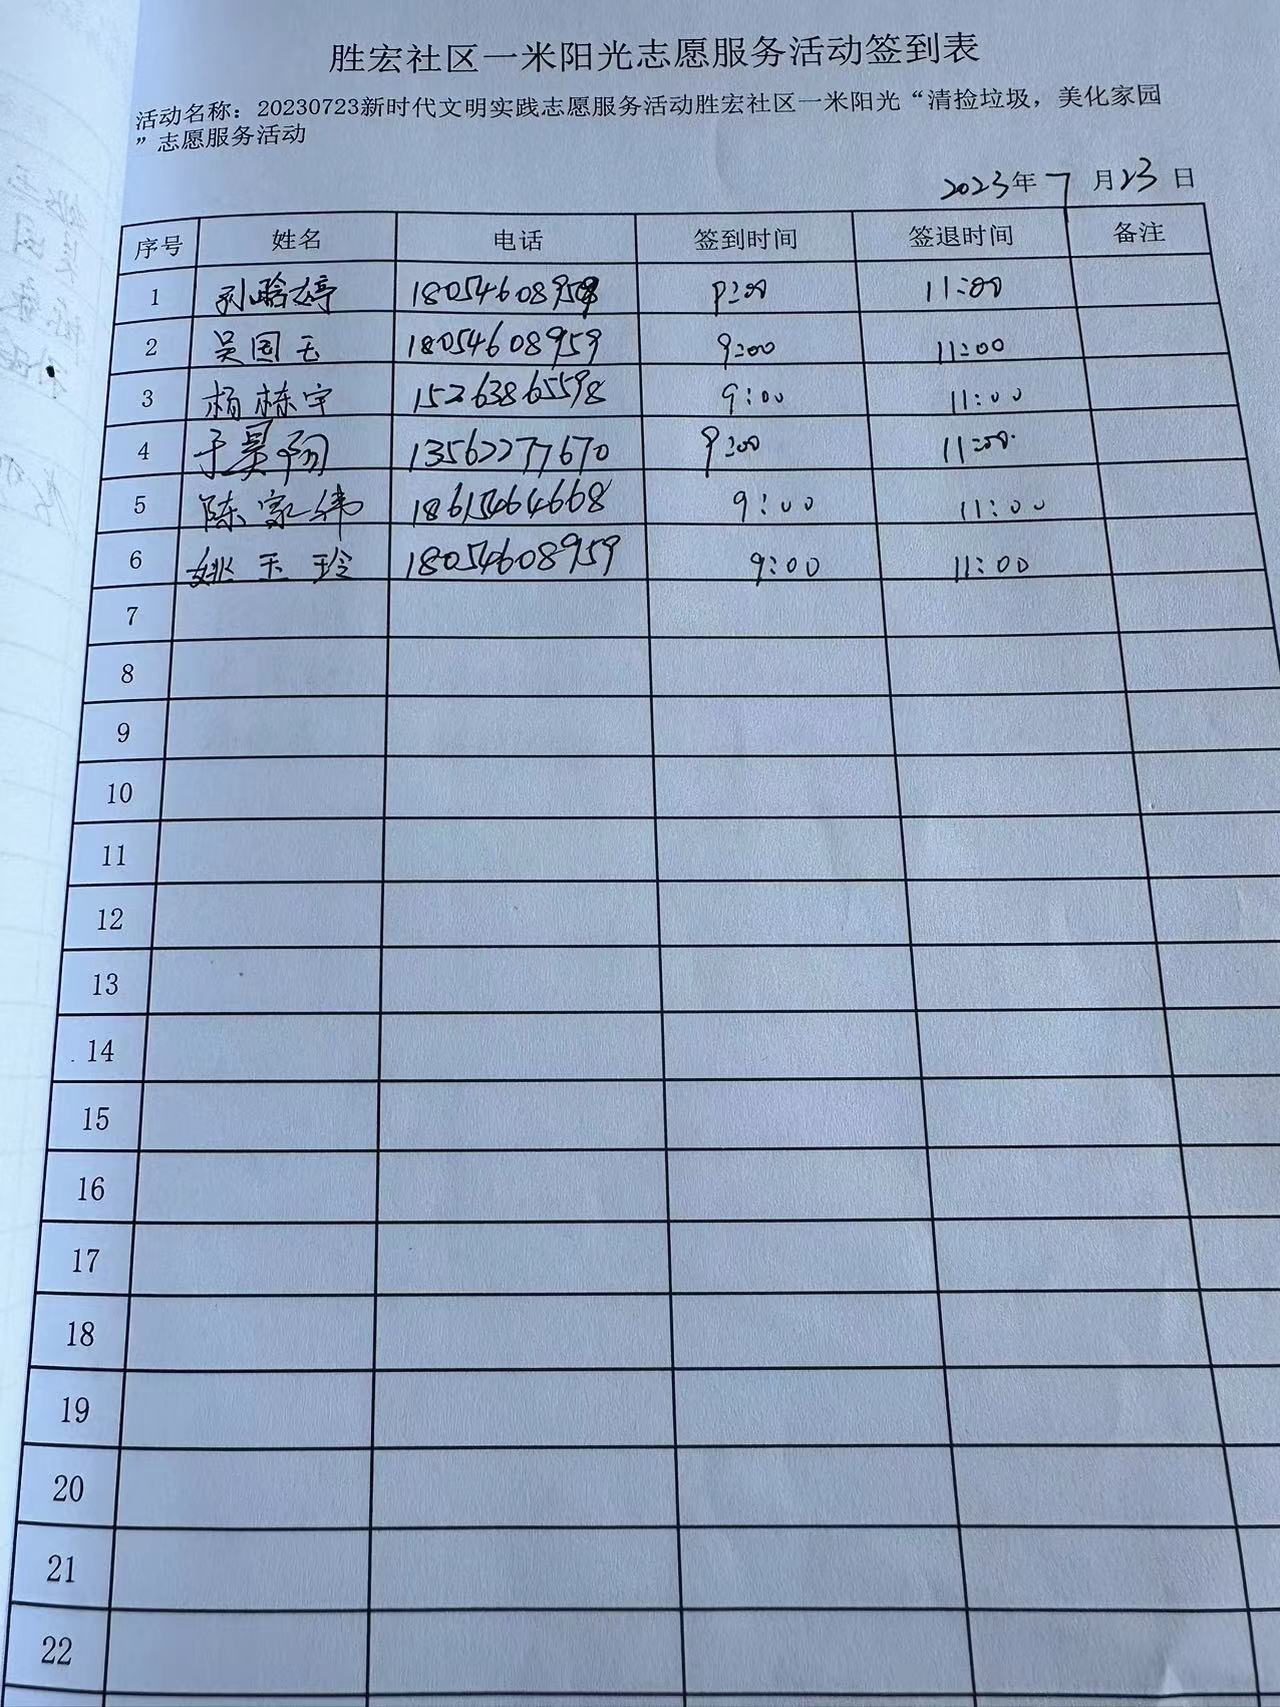 胜宏社区一米阳光志愿服务活动签到表
活动名称：20230723新时代文明实践志愿服务活动胜宏社区一米阳光“清捡垃圾，美化家园
”志愿服务活动
2023年7月23日
序号 姓名 电话 签到时间 签退时间 备注
1 孙晗婷 18054608959 9:00 11:00
2 吴国玉 18054608959 9:00 11:00
3 杨栋宇 15263865598 9:00 11:00
4 于昊阳 13562277670 9:00 11:00
5 陈家纬 18615464668 9:00 11:00
6 姚玉玲 18054608959 9:00 11:00
7
8
9
10
11
12
13
14
15
16
17
18
19
20
21
22